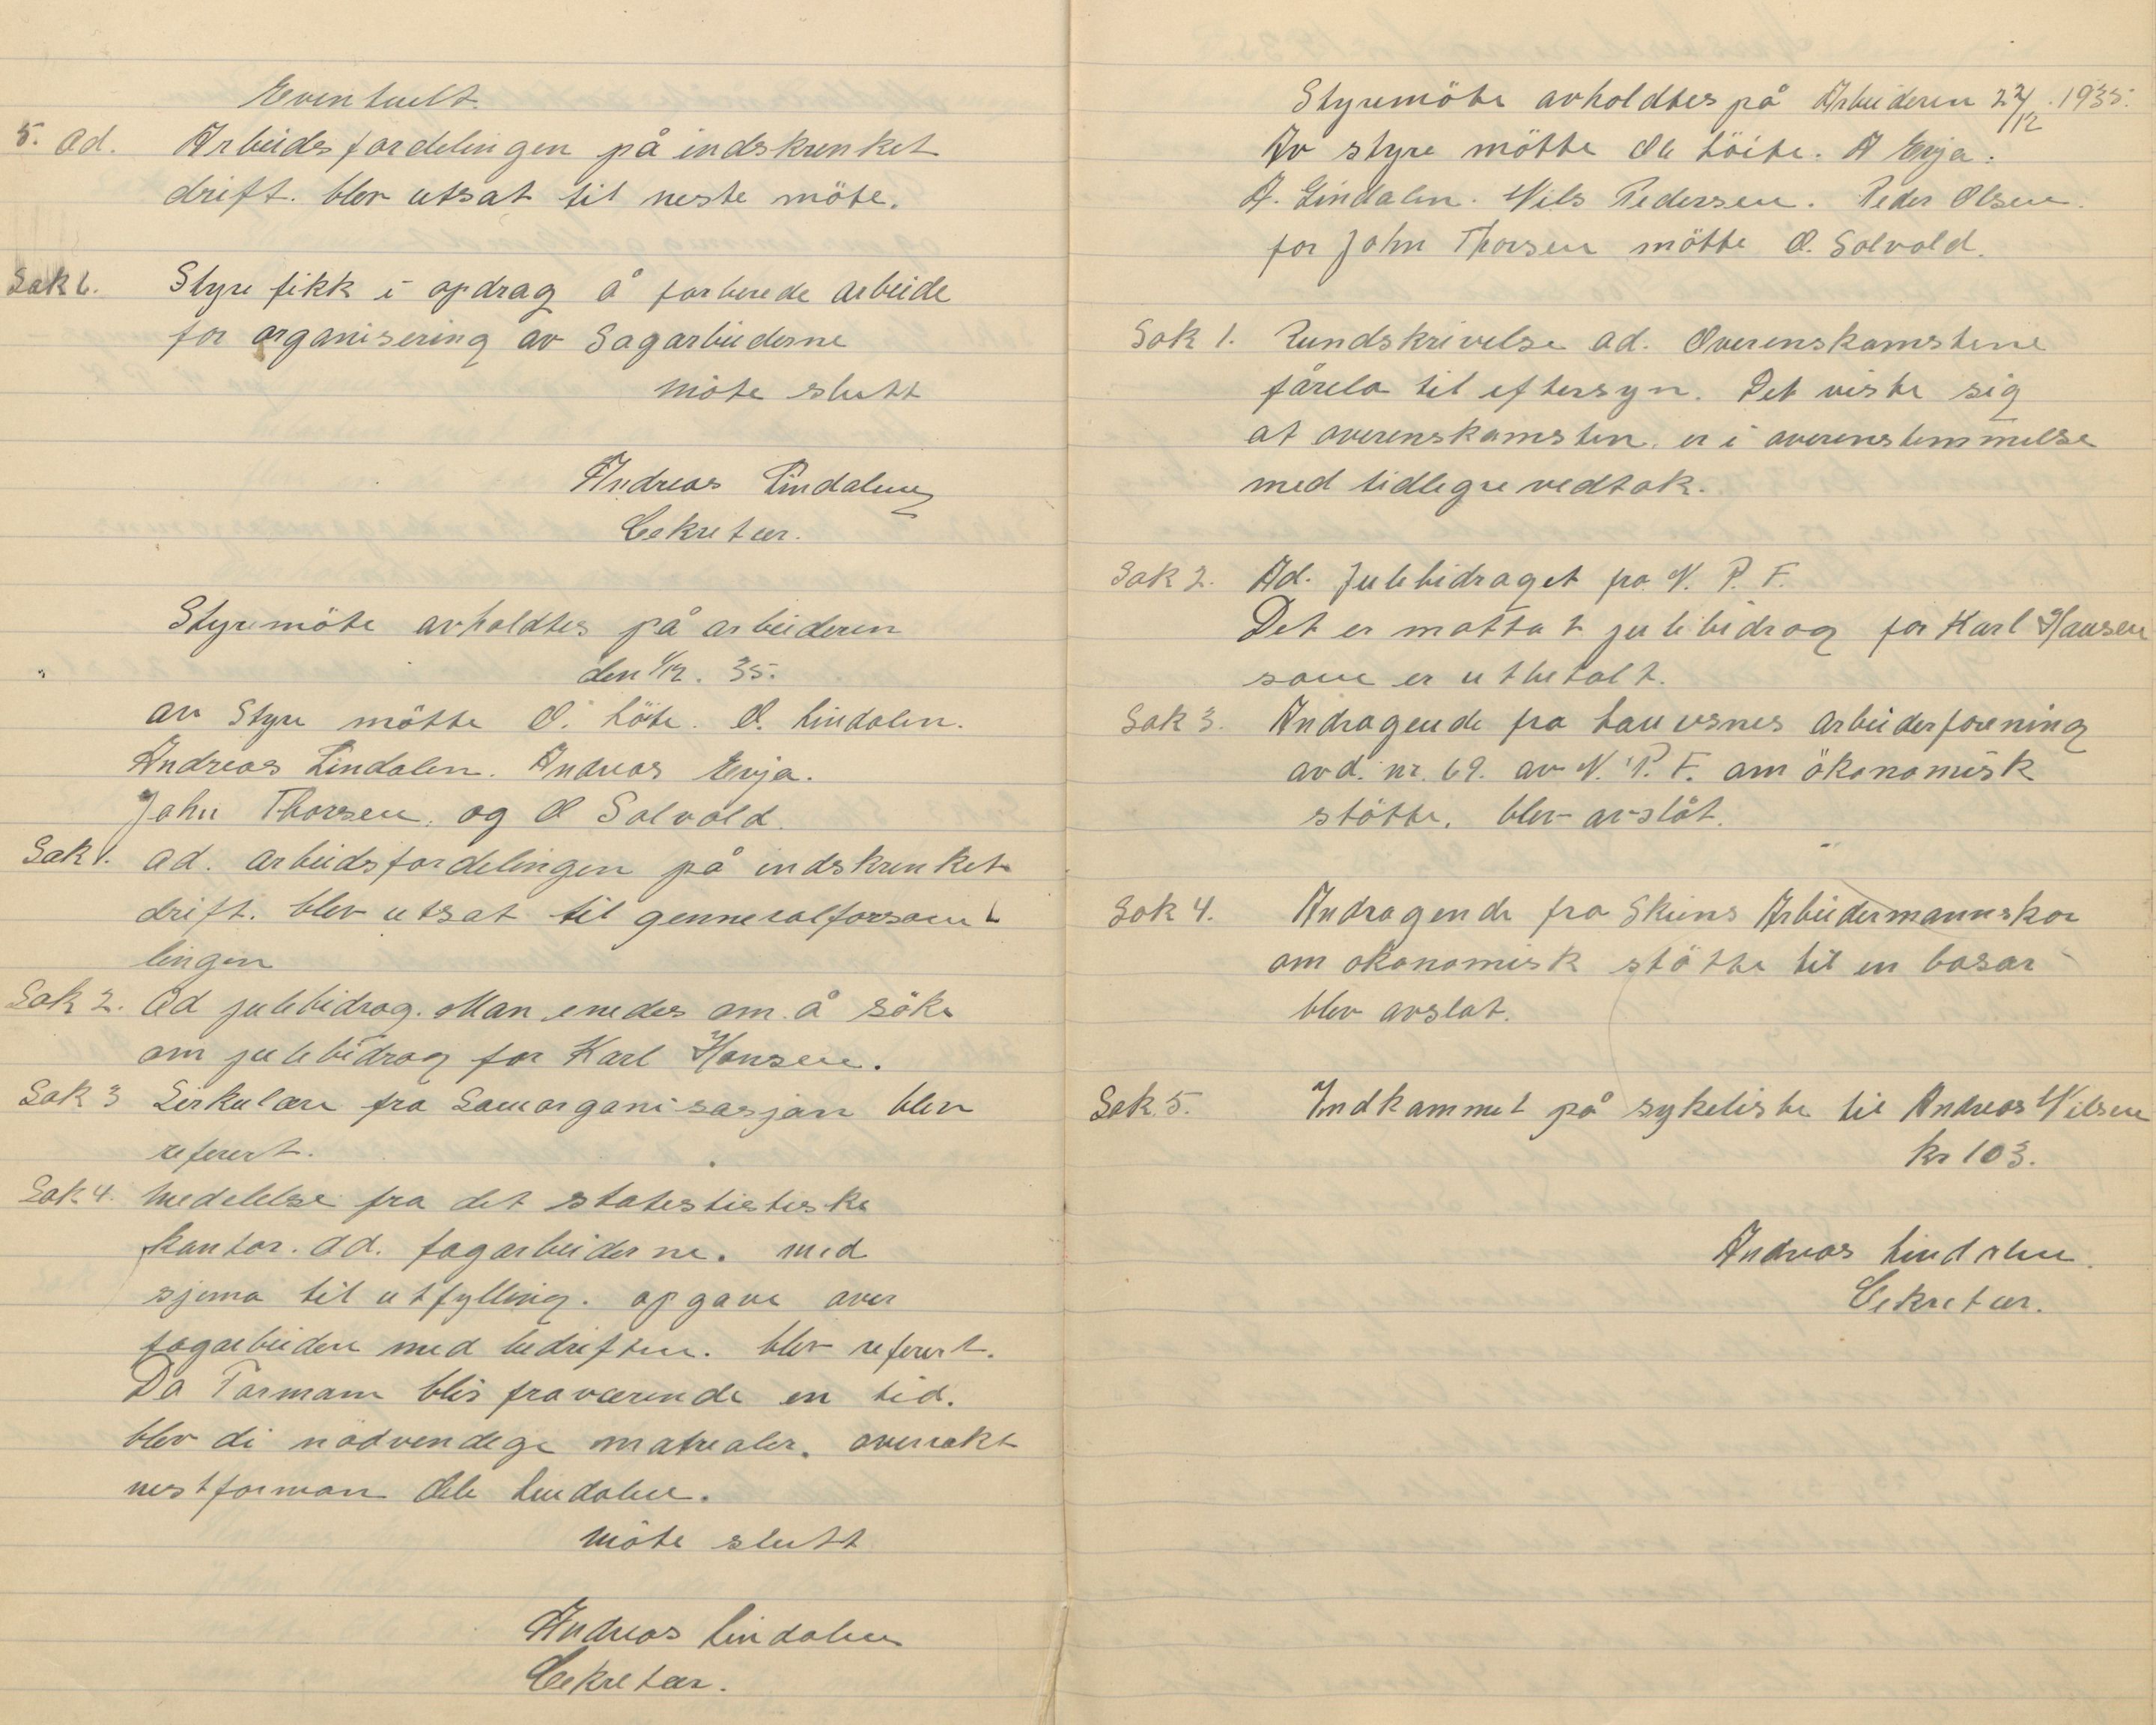 Eventuelt.
5. ad. Arbeidsfordelingen på indskrenket
drift. blev utsat til neste möte.
Sak 6. Styre fikk i opdrag å forberede arbeide
for organisering av Sagarbeiderne
möte slutt
Andreas Lindalen
Cekretær.
Styremöte avholdtes på arbeideren
den 1/12. 35.
av Styre mötte O. Löte. O. Lindalen.
Andreas Lindalen. Andreas Evja.
John Thorsen. og O Solvold.
Sak 1. ad. arbeidsfordelingen på indskrenket
drift. blev utsat til genneralforsam-
lingen
Sak 2. Ad julebidrag. Man enedes om å söke
om julebidrag for Karl Hansen.
Sak 3 Sirkulære fra Samorganisasjon blev
referert.
Sak 4. Medelelse fra det statestistiske
kontor. ad. fagarbeiderne. med
sjema til utfylling. opgave over
fagarbeidere med bedriften. blev referert.
Da Formann blir fraværende en tid.
blev di nödvendige matrealer. overrakt
nestforman Ole Lindalen.
Möte slutt
Andreas Lindalen
Cekretær.
Styremöte avholdtes på Arbeideren 22/12. 1935.
Av styre mötte Ole Löite. A Evja.
A. Lindalen. Nils Pedersen. Peder Olsen.
for John Thorsen mötte O. Solvold.
Sak 1. Rundskrivelse ad. Overenskomstene
fårela til eftersyn. Det viste sig
at overenskomsten er i overenstemmelse
med tidlegre vedtak.
Sak 2. Ad. Julebidraget fra N. P. F.
Det er mottat julebidrag for Karl Hansen
som er utbetalt.
Sak 3. Andragende fra arbeiderforening
avd. nr. 69. av N. P. F. om ökonomisk
stötte. blev avslåt.
Sak 4. Andragende fra Skiens Arbeidermannskor
om okonomisk stötte til en basar
blev avslat.
Sak 5. Indkommet på sykeliste til Andreas Nilsen
kr 103.
Andreas Lindalen.
Cekretær.